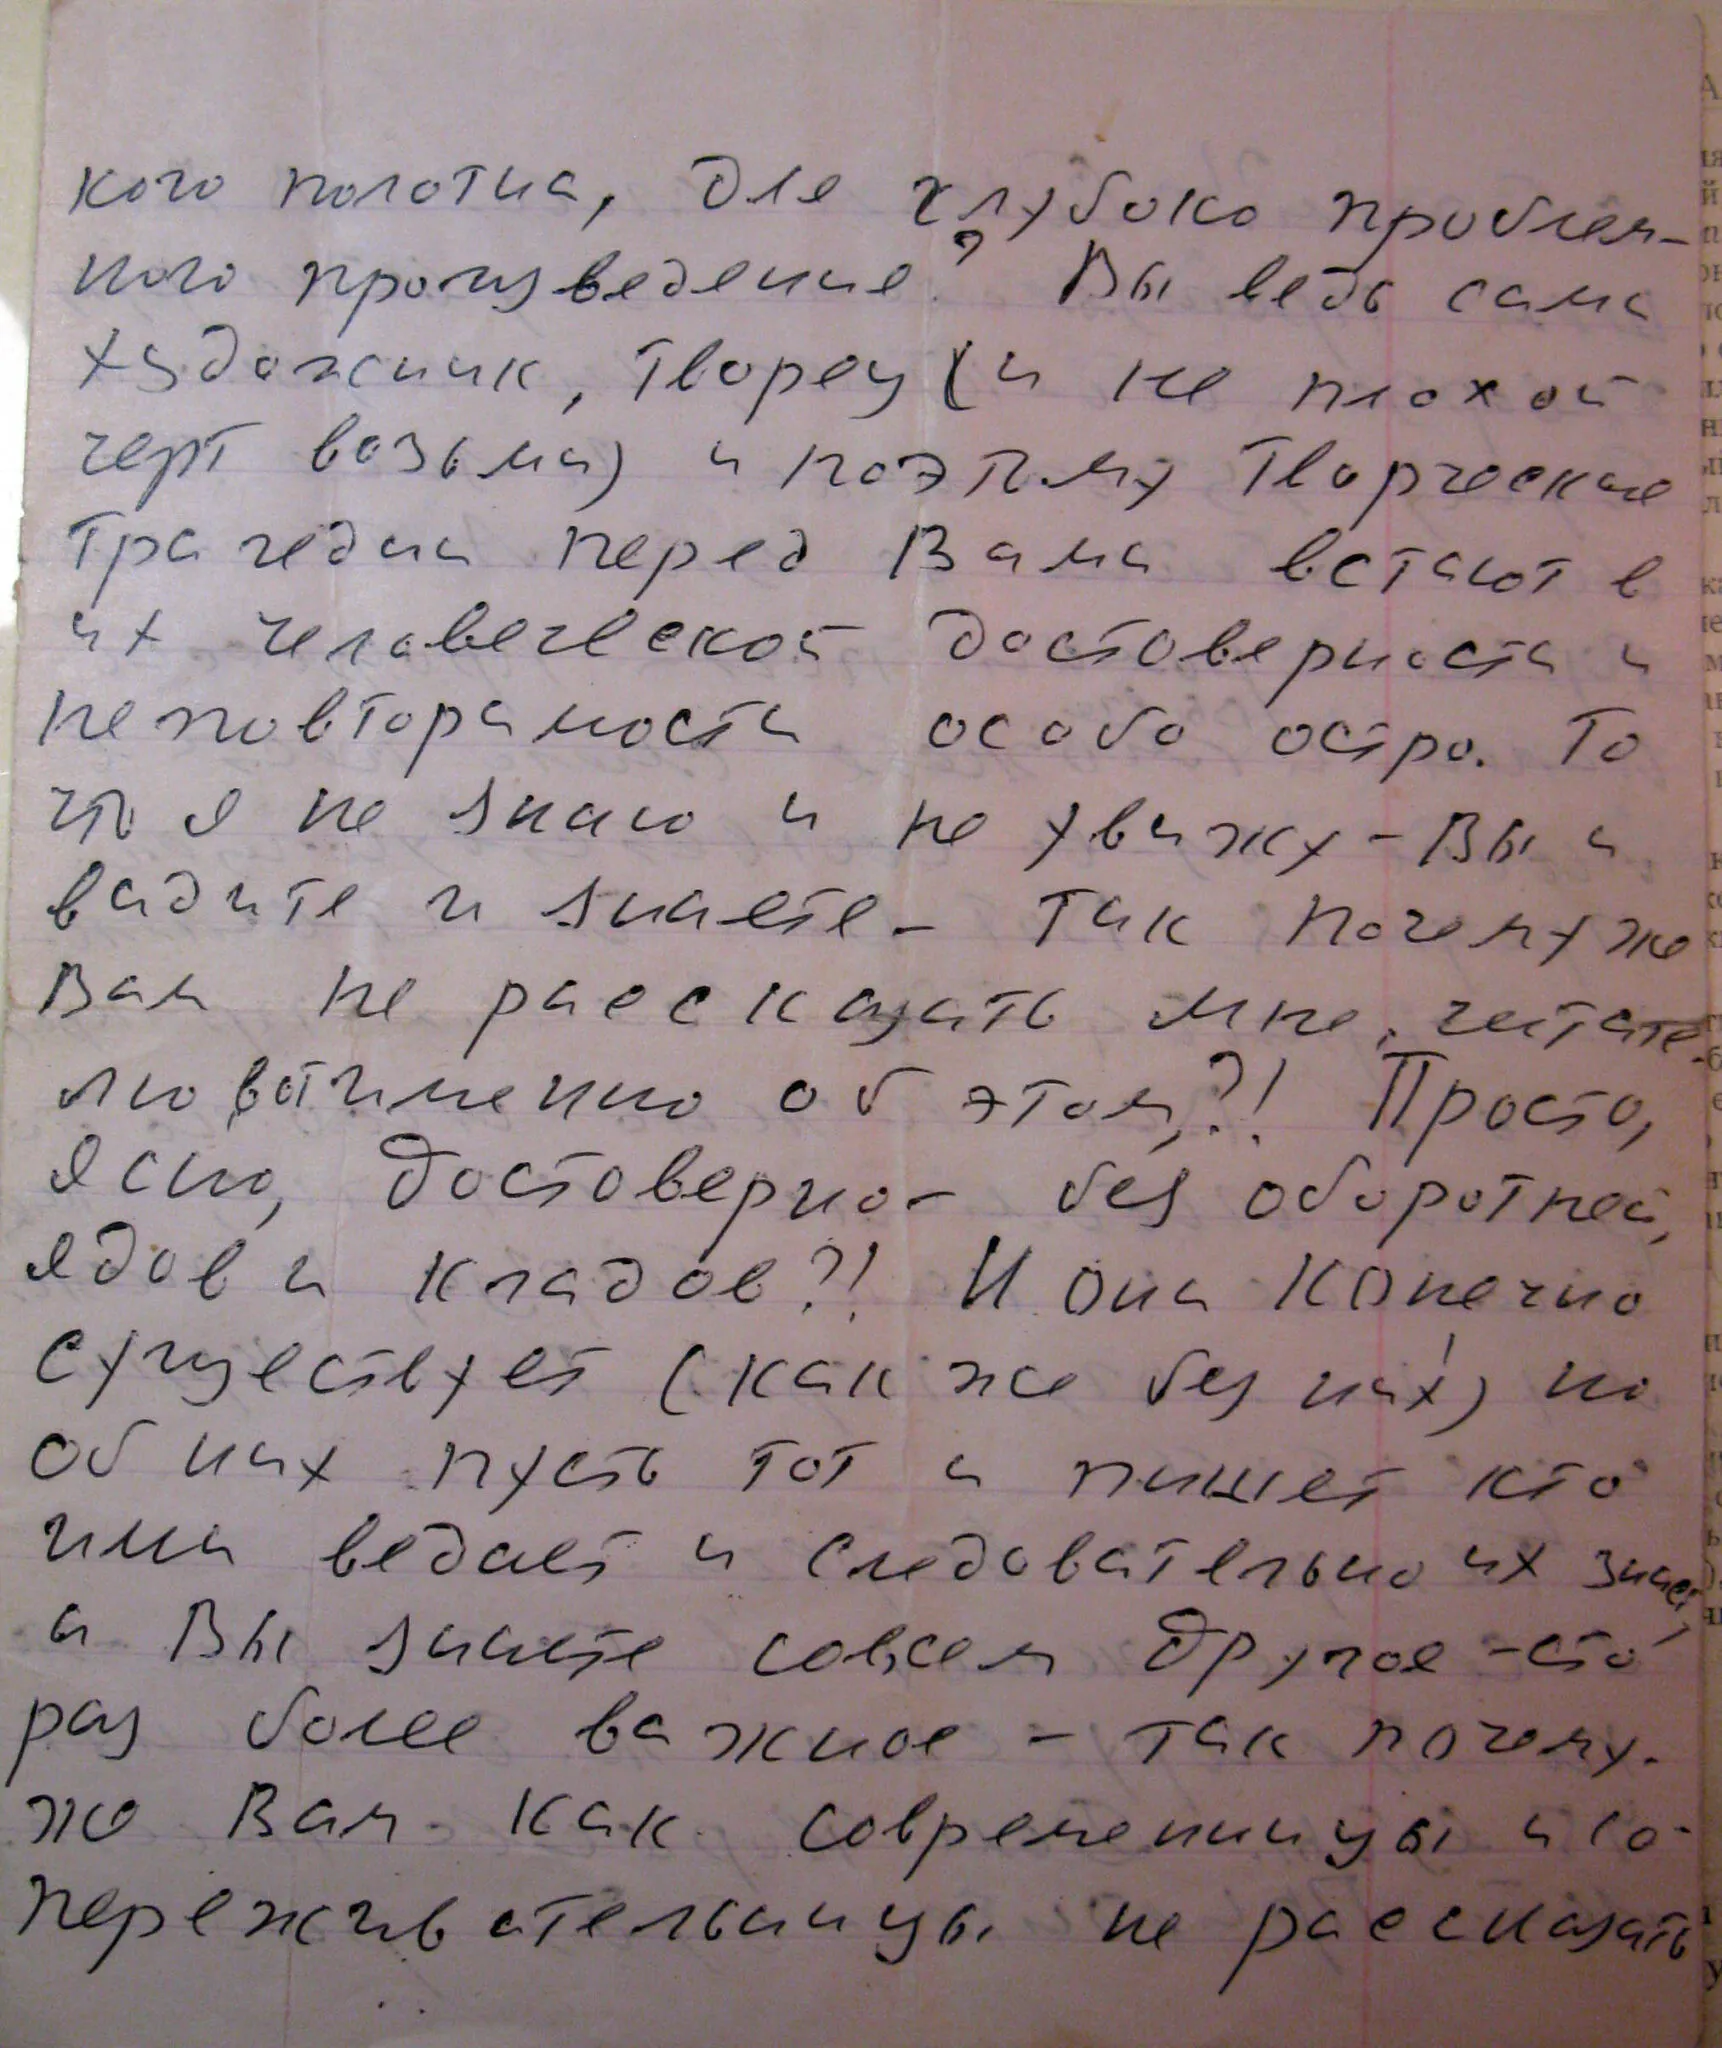 кого полотна, для глубоко проблем-
ного произведения? Вы ведь сами
художник, творец (и не плохой
черт возьми) и поэтому творческие
трагедии перед Вами встают в
их человеческой достоверности и
неповторимости особо остро. То
что я не знаю и не увижу - Вы и
видите и знаете - так почему же
Вам не рассказать мне, читате-
лю вот именно об этом,?! Просто,
ясно, достоверно - без оборотней,
ядов и кладов?! И они конечно
существует (как же без них!) но
об них пусть тот и пишет кто
ими ведает и следовательно их знает,
а Вы знаете совсем другое - сто
раз более важное - так почему
же Вам как современницы и со-
переживательницы не рассказать